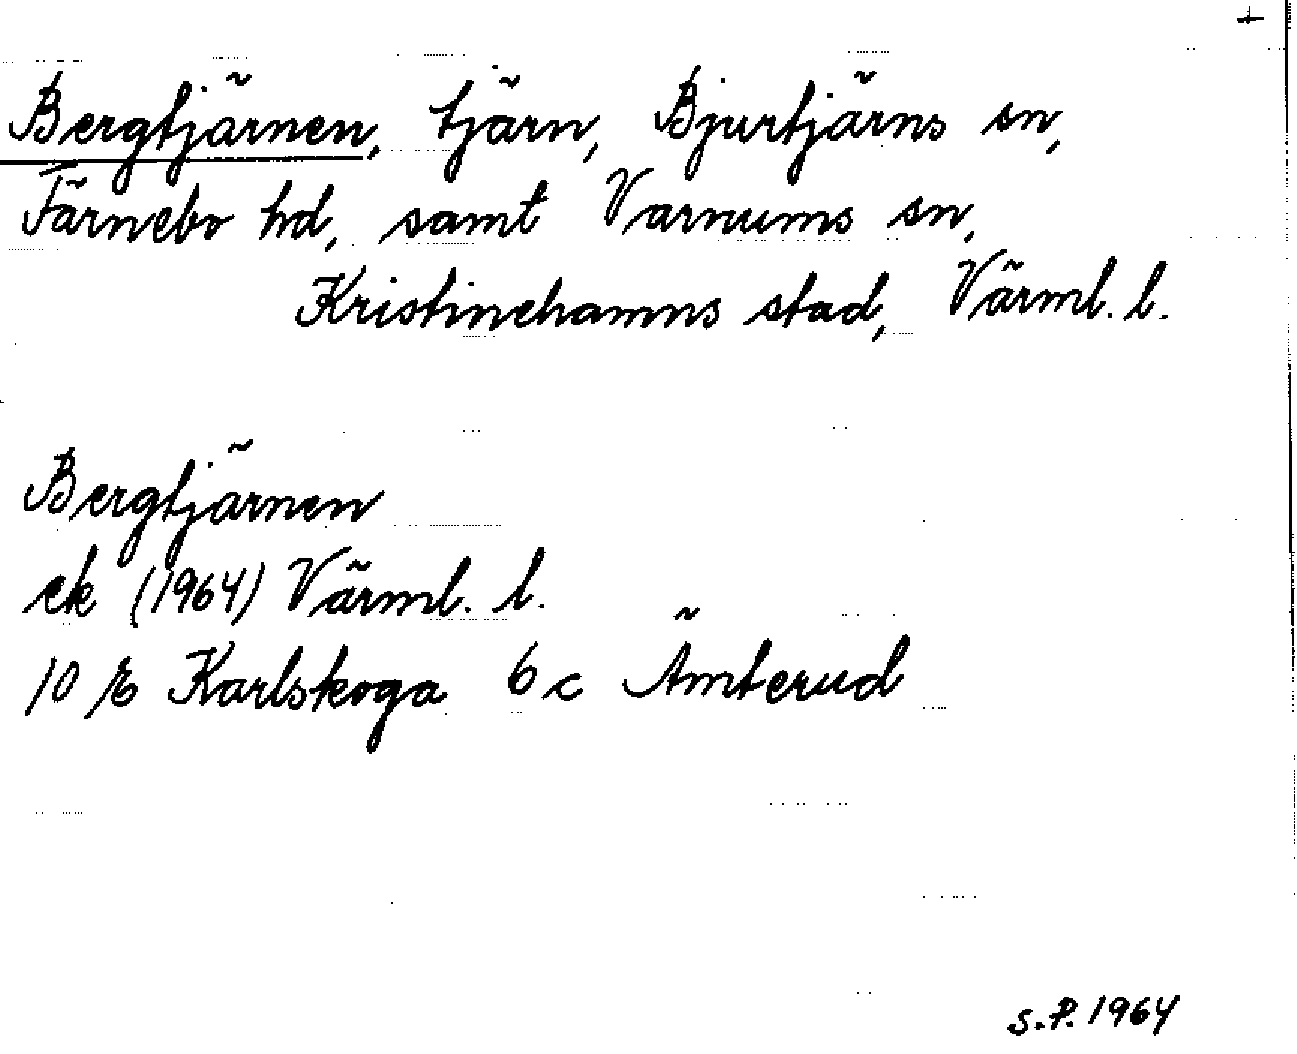 +
Bergtjärnen, tjärn, Bjurtjärns sn,
Färnebo hd, samt Varnums sn,
Kristinehamns stad, Värml. l.
Bergtjärnen
ek (1964) Värml. l.
10 E Karlskoga 6 c Ämterud
S.P. 1964